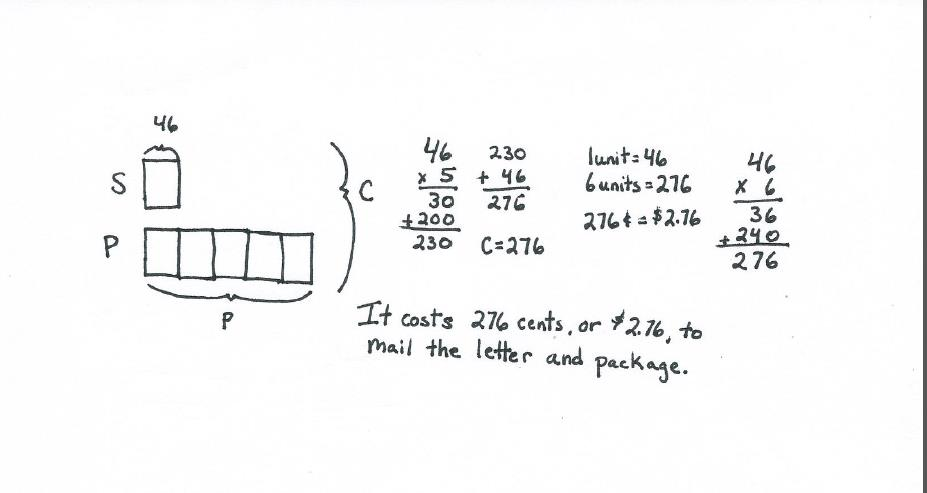 46
S
P
P
C
46
x 5
30
+200
230
230
+ 46
276
C=276
1unit=46
6units=276
276¢=$2.76
46
x 6
36
+240
276
It costs 276 cents, or $2.76, to
mail the letter and package.